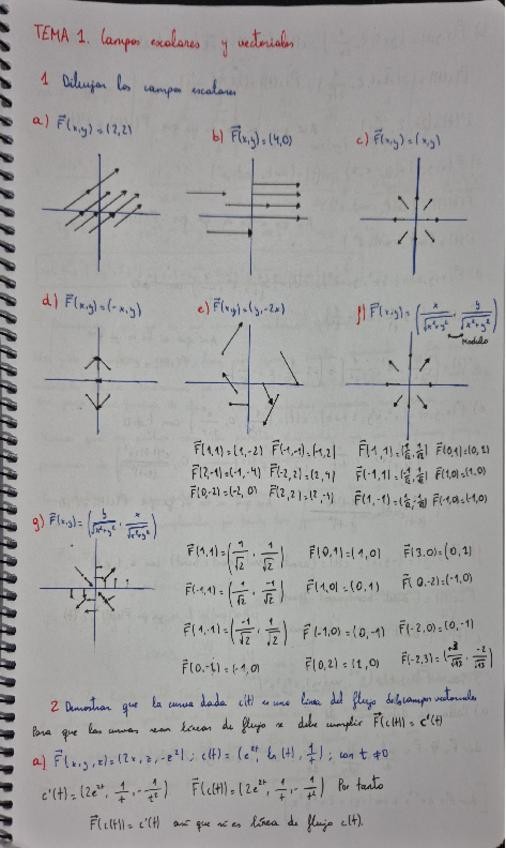 TEMA 1. Campos escalares y vectoriales
1 Dibujar los campos escalares
a) F⃗(x,y)=(2,2)
b) F⃗(x,y)=(4,0)
c) F⃗(x,y)=(x,y)
d) F⃗(x,y)=(-x,y)
e) F⃗(x,y)=(y,-2x)
f) F⃗(x,y)=(x/√x²+y², y/√x²+y²)
Modulo
F⃗(1,1)=(1,-2) F⃗(-1,-1)=(-1,2) F⃗(1,1)=(1/√2, 1/√2) F⃗(0,1)=(0,
F⃗(2,-1)=(-1,-4) F⃗(-2,2)=(2,4) F⃗(-1,1)= F⃗(1,0)=(1,0)
F⃗(0,-2)=(-2,0) F⃗(2,2)=(2,-4) F⃗(1,-1)= F⃗(-1,0)=(-1,0)
g) F⃗(x,y)=(y/√x²+y², x/√x²+y²)
F⃗(1,1)=(1/√2, 1/√2) F⃗(0,1)=(1,0) F⃗(3,0)=(0,1)
F⃗(-1,1)=(1/√2, -1/√2) F⃗(1,0)=(0,1) F⃗(0,-2)=(-1,0)
F⃗(1,-1)=(-1/√2, 1/√2) F⃗(-1,0)=(0,-1) F⃗(-2,0)=(0,-1)
F⃗(0,-1)=(-1,0) F⃗(0,2)=(1,0) F⃗(-2,3)=(+3/√13, -2/√13)
2 Demostrar que la curva dada c(t) es una línea del flujo de los campos vectoriales
Para que las curvas sean líneas de flujo se debe cumplir F⃗(c(t))=c'(t)
a) F⃗(x,y,z)=(2x,z,-z²); c(t)=(e²ᵗ, ln(t), 1/t); con t≠0
c'(t)=(2e²ᵗ, 1/t, -1/t²) F⃗(c(t))=(2e²ᵗ, 1/t, -1/t²) Por tanto
F⃗(c(t))=c'(t) así que si es línea de flujo c(t).